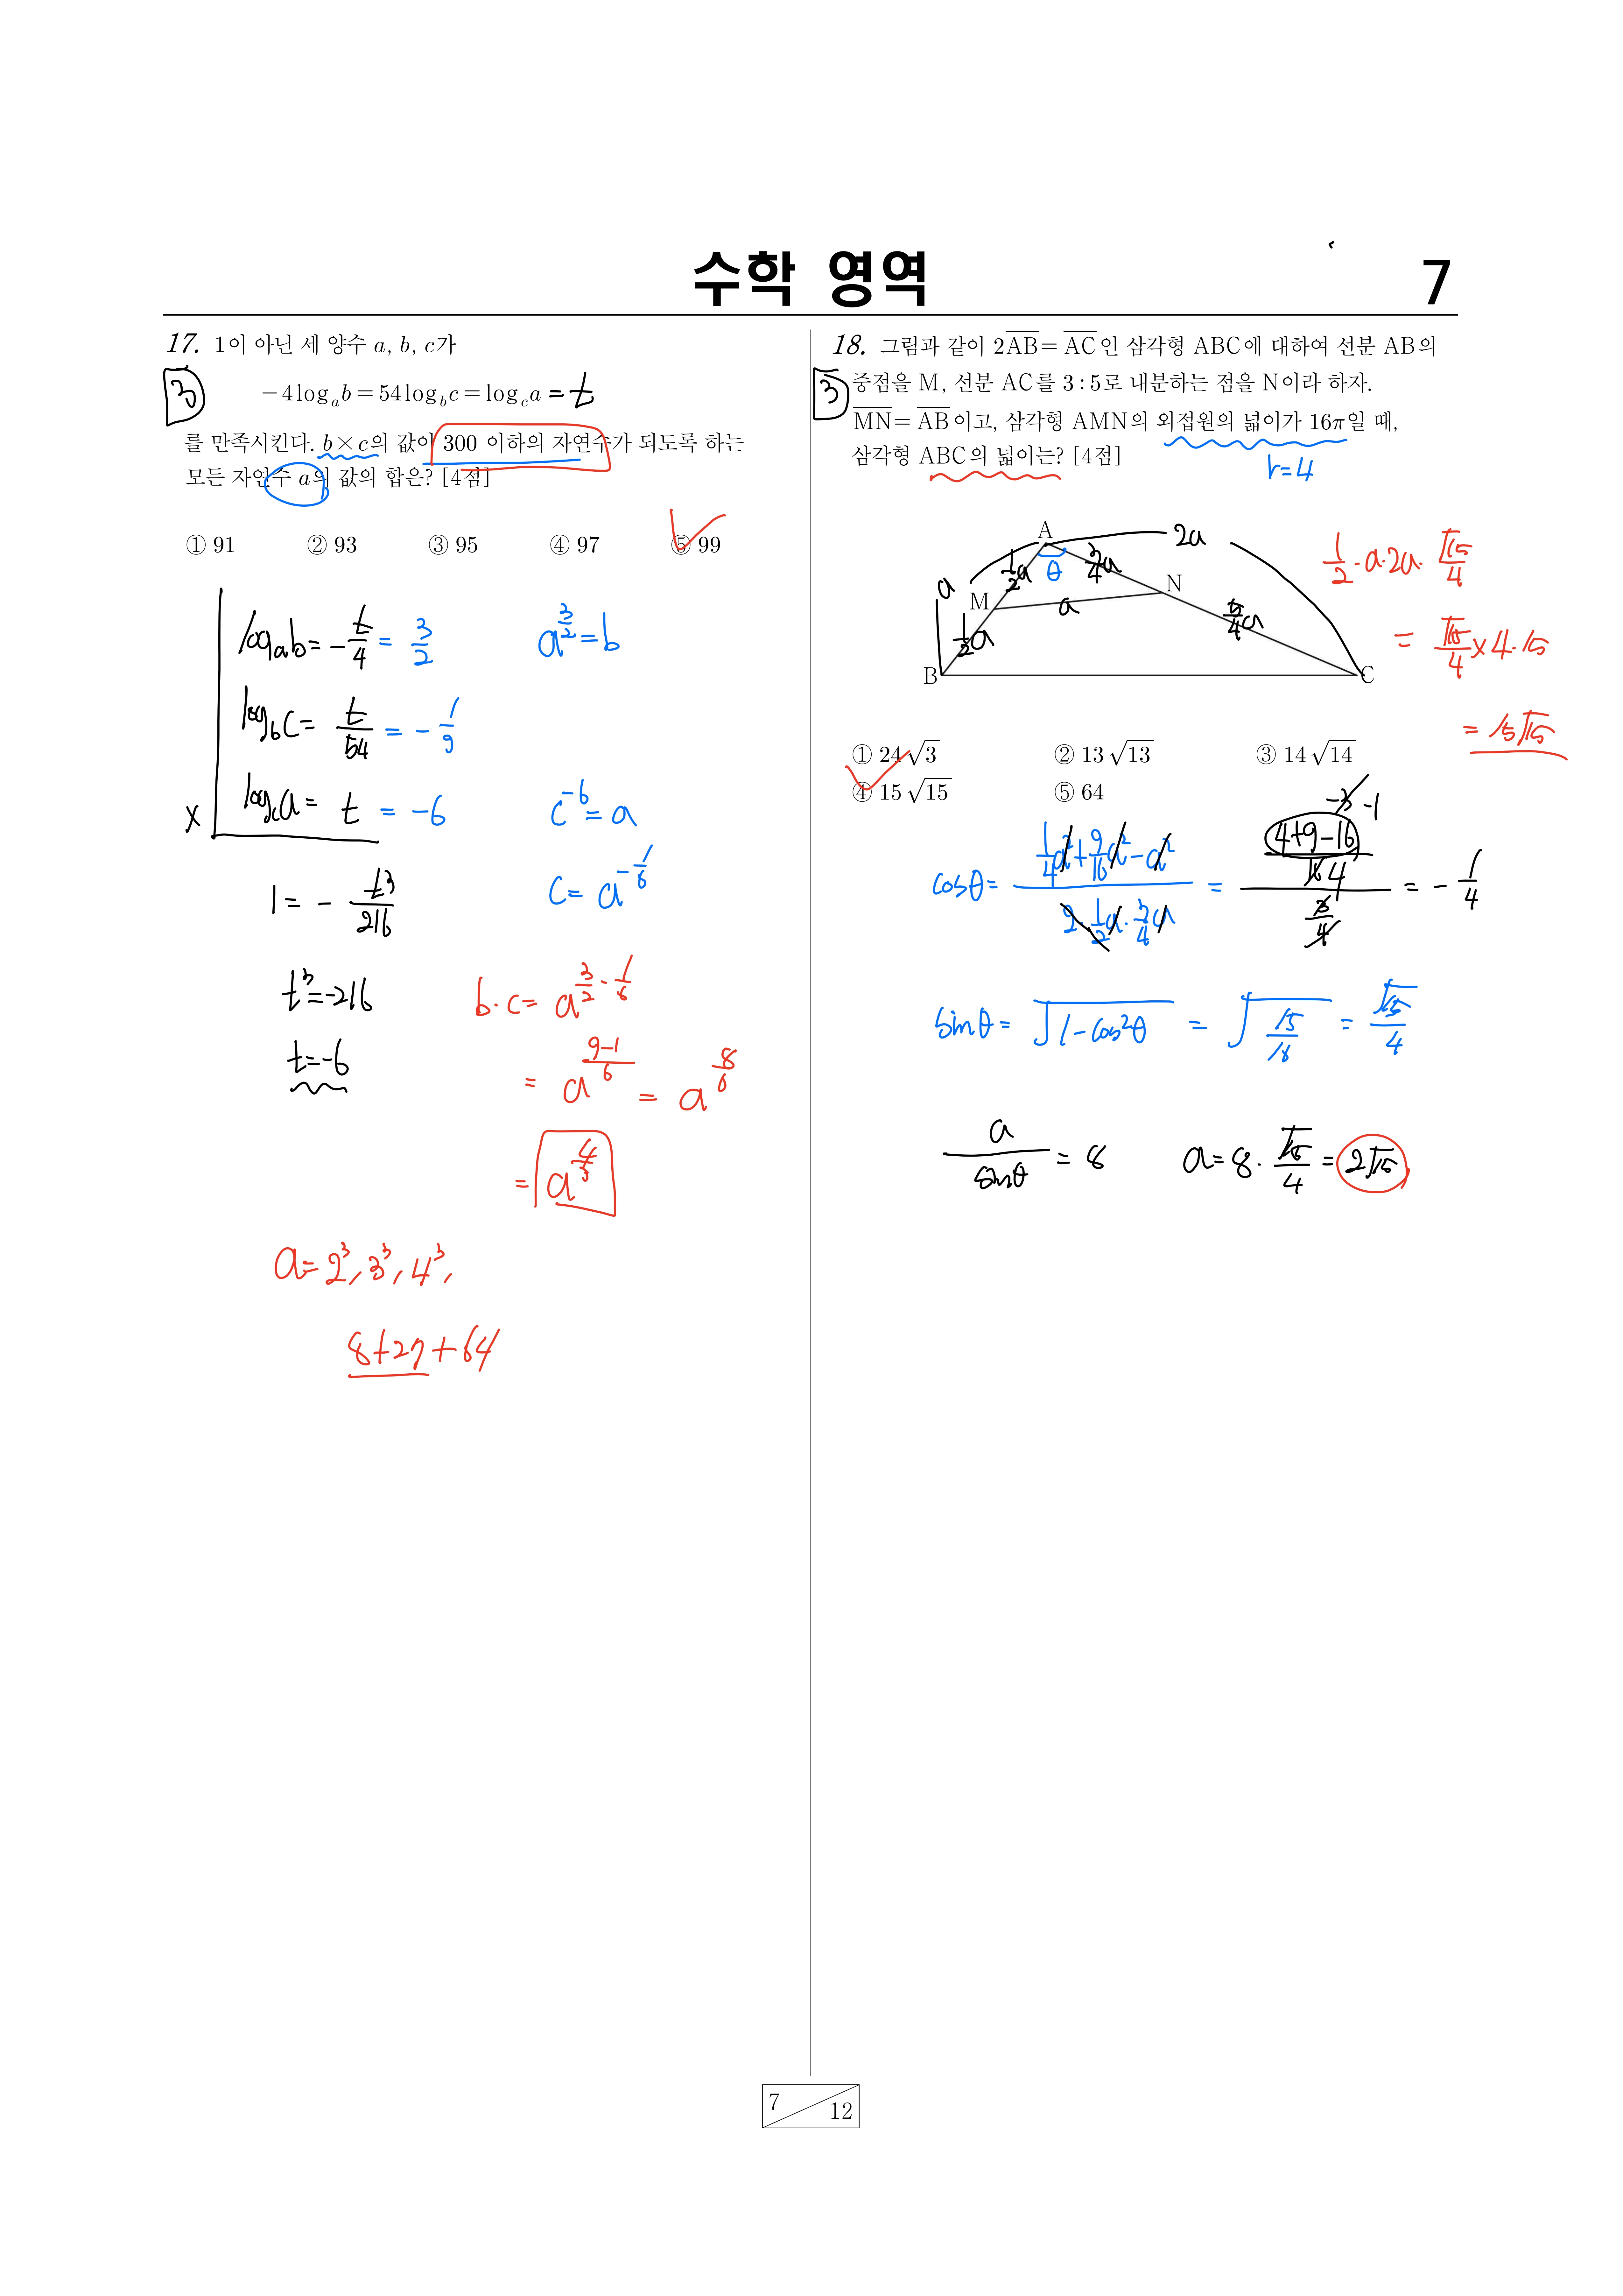 수학 영역
7
17. 1이 아닌 세 양수 a, b, c가
③
-4log_a b = 54log_b c = log_c a = t
를 만족시킨다. b×c의 값이 300 이하의 자연수가 되도록 하는
모든 자연수 a의 값의 합은? [4점]
① 91 ② 93 ③ 95 ④ 97 ⑤ 99
log_a b = -t/4 = 3/2
a^(3/2) = b
log_b c = t/54 = -1/9
× log_c a = t = -6
c^(-6) = a
1 = -t³/216
c = a^(-1/6)
t³ = -216
b·c = a^(3/2 - 1/6)
t = -6
= a^((9-1)/6) = a^(8/6)
= a^(4/3)
a = 2³, 3³, 4³,
8+27+64
18. 그림과 같이 2AB = AC인 삼각형 ABC에 대하여 선분 AB의
3
중점을 M, 선분 AC를 3 : 5로 내분하는 점을 N이라 하자.
MN = AB이고, 삼각형 AMN의 외접원의 넓이가 16π일 때,
삼각형 ABC의 넓이는? [4점]
r=4
A
2a
a
1/2 a
θ
3/4 a
M
N
a
1/2 a
5/4 a
B
C
1/2 · a · 2a · √15/4
= √15/4 × 4·15
= 15√15
① 24√3 ② 13√13 ③ 14√14
④ 15√15 ⑤ 64
cosθ = (1/4 a² + 9/16 a² - a²)/(2 · 1/2 a · 3/4 a) = ((4+9-16)/16 4)/(3/4) = -1/4
-3 -1
sinθ = √(1-cos²θ) = √(15/16) = √15/4
a/sinθ = 8
a = 8 · √15/4 = 2√15
7
12